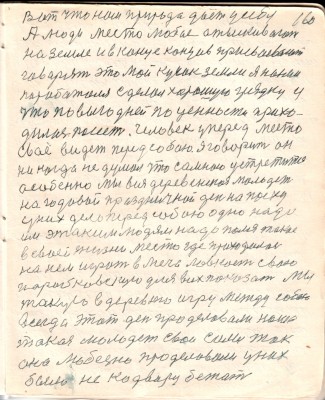 Вот что нам природа дает у себу 160
А люди место такое отыскивают
на земле и в конце концов присваевают
говорят это мой кусок земли я на ней
наработал сделал хорошую грядку у
что по выгодней по ценность прихо-
дилась посеет. Человек у перед место
своё видет перед собою я говорит он
ни когда не думал это самною устретится
особенно мы вся деревенская молодеж
на годовой праздничной ден на поску
у них дело перед собою одно надо
им этаким людям надо помятание
в своей жизни место где проходили
на нем играт в мяга ловкост свою
показат мы
такую в деревню игру между собою
Всегда этот ден проделовали наша
такая молодеж свои сели так
она любезно проделовали у них
было не кадвару бежат